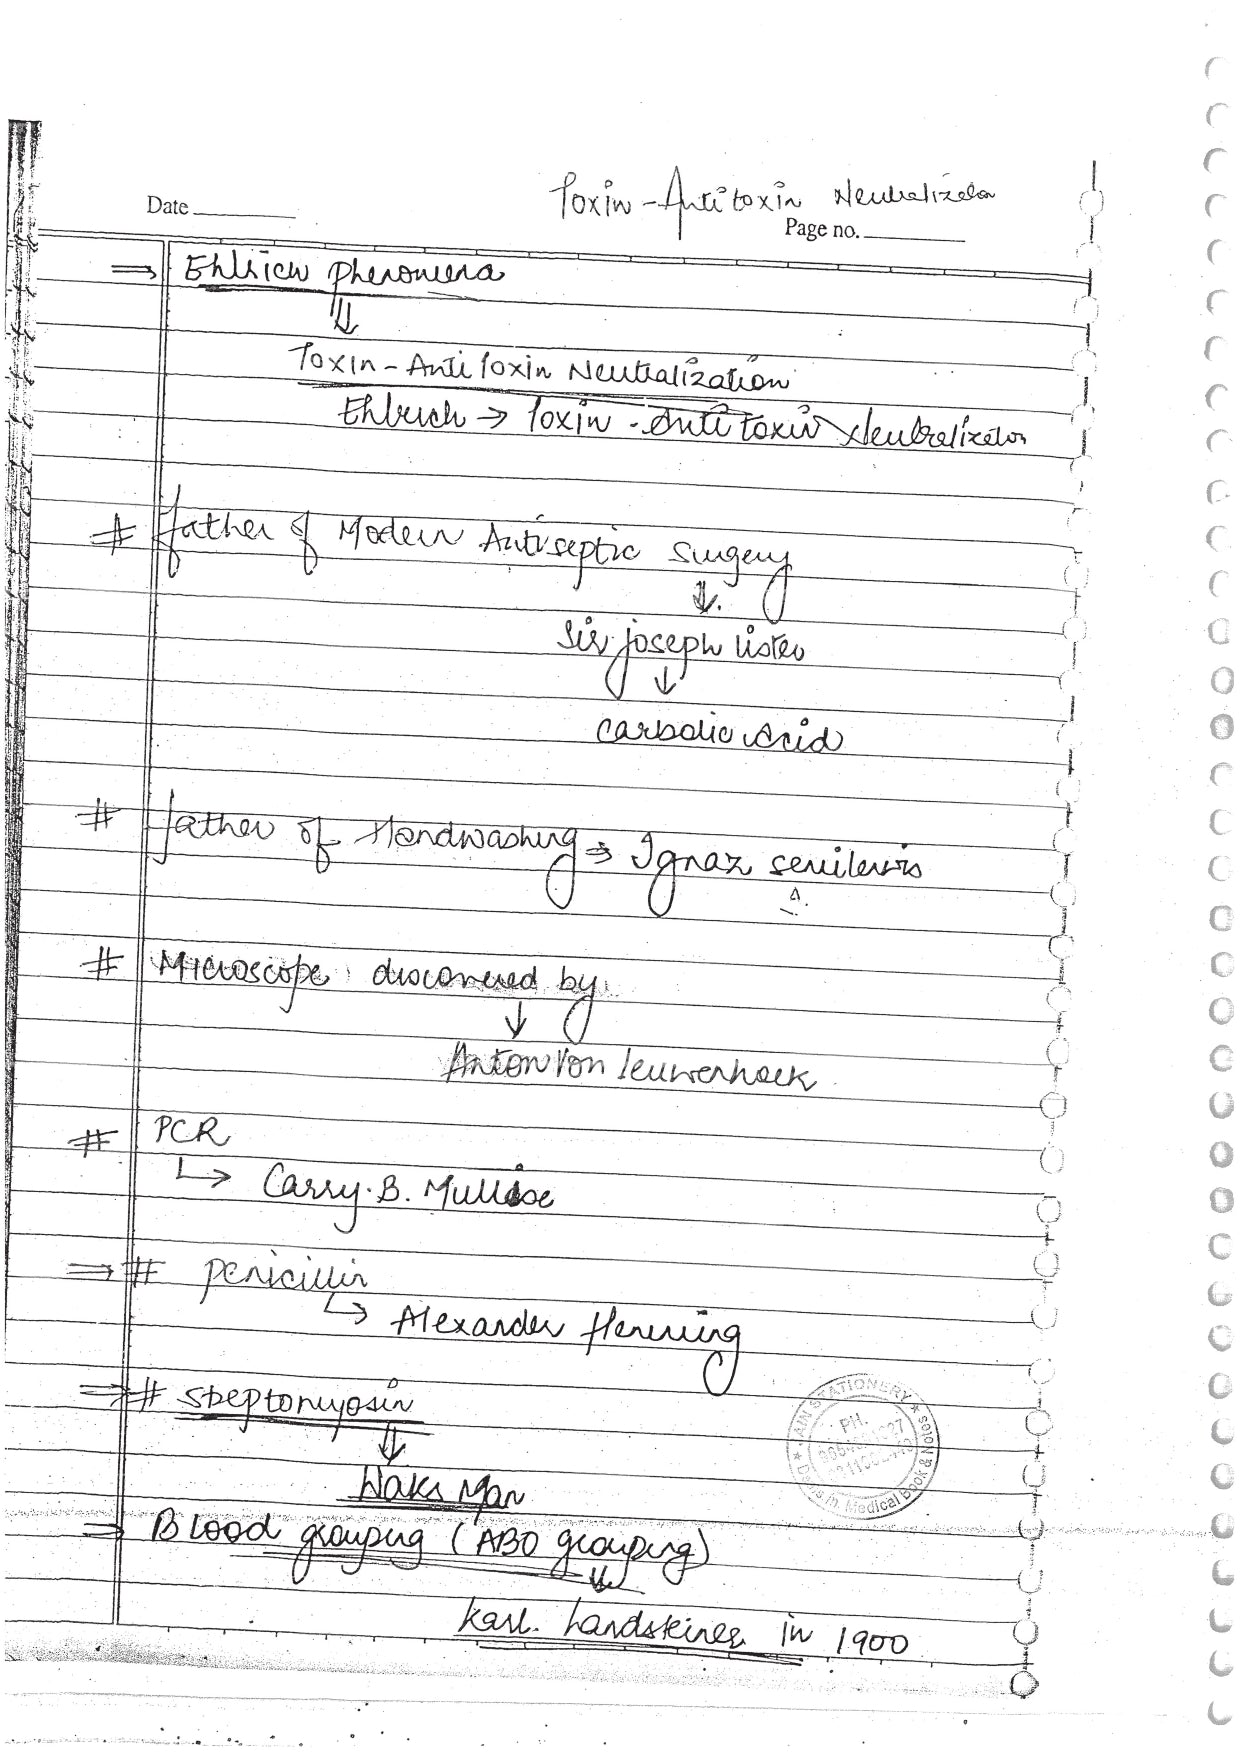 Toxin-Antitoxin Neutralizaton
Date
Page no.
⇒ Ehlrich phenomena
⇓
Toxin-Antitoxin Neutralization
Ehlrich → Toxin-Antitoxin Neutralizaton
# father of Modern Antiseptic surgery
↓
Sir joseph lister
↓
Carbolic Acid
# father of Handwashing ⇒ Ignaz
# Microscope discovered by
↓
Anton Von leuwenhoek
# PCR
↳ Carry. B.
⇒ # Penicillin
↳ Alexander Flemming
⇒ # Steptomyosin
⇓
Waks Man
⇒ Blood grouping (ABO grouping)
⇓
Karl. Landsteiner in 1900
STATIONERY
PH.
Medical Book & Notes